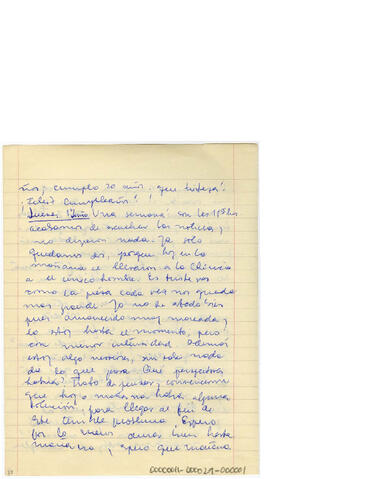 ños, cumplo 20 años, que tristeza!
¡Feliz Cumpleaños!
Jueves Una semana son las
acabamos de escuchar las noticias,
no dijeron nada. Ya solo
quedamos dos, porque hoy en la
mañana se llevaron a la Clínica
a el único hombre. Es triste ver
como la pieza cada vez nos queda
mas grande. Yo no he estado bien
pues amanecí muy mareada,
lo estoy hasta el momento, pero
con menor intensidad además
estoy algo nerviosa, sin saber nada
de lo que pasa ¿Qué perspectivas
habrá? Trato de pensar, convencerme
que hoy o mañana habrá alguna
solución, para llegar al fin de
este terrible problema. Espero
por lo menos dormir bien hasta
mañana, espero que mañana
0000011-000029-000001